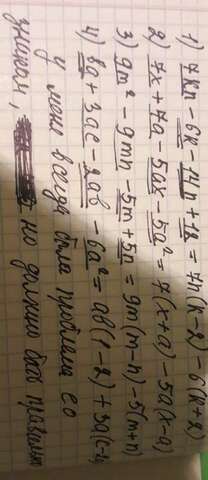 1) 7kn - 6k - 14n + 12 = 7n(k-2) - 6(k+2)
2) 7x + 7a - 5ax - 5a² = 7(x+a) - 5a(x-a)
3) 9m² - 9mn - 5m + 5n = 9m(m-n) - 5(m+n)
4) ba + 3ac - 2ab - 6a² = ab(1-2) + 3a(c-2
у меня всегда была проблема со
знаками, но должно быть правильно